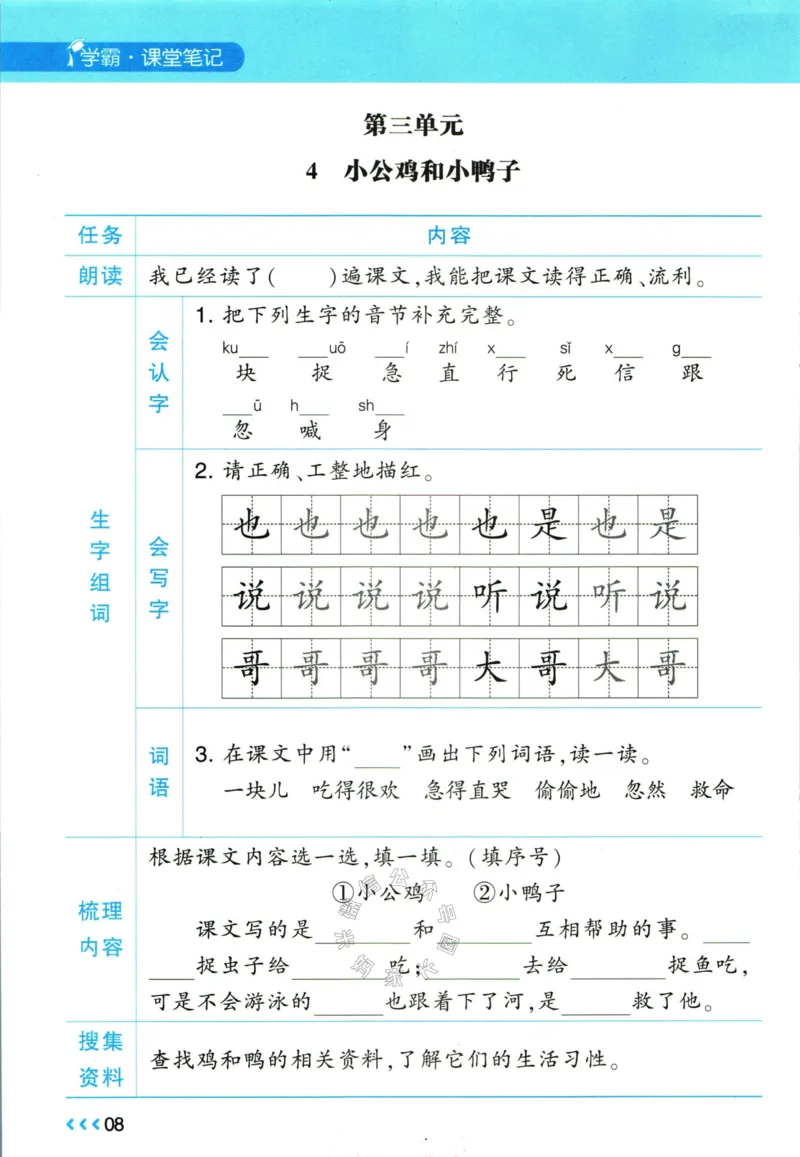 学霸·课堂笔记
第三单元
4 小公鸡和小鸭子
任务 内容
朗读 我已经读了( )遍课文,我能把课文读得正确、流利。
生字组词
会认字
1. 把下列生字的音节补充完整。
ku___ ___uō ___í zhí x___ sǐ x___ g___
块 捉 急 直 行 死 信 跟
___ū h___ sh___
忽 喊 身
会写字
2. 请正确、工整地描红。
也 也 也 也 也 是 也 是
说 说 说 说 听 说 听 说
哥 哥 哥 哥 大 哥 大 哥
词语
3. 在课文中用“____”画出下列词语,读一读。
一块儿 吃得很欢 急得直哭 偷偷地 忽然 救命
梳理内容
根据课文内容选一选,填一填。(填序号)
①小公鸡 ②小鸭子
课文写的是________和________互相帮助的事。____
____捉虫子给________吃;________去给________捉鱼吃,
可是不会游泳的______也跟着下了河,是______救了他。
搜集资料
查找鸡和鸭的相关资料,了解它们的生活习性。
08